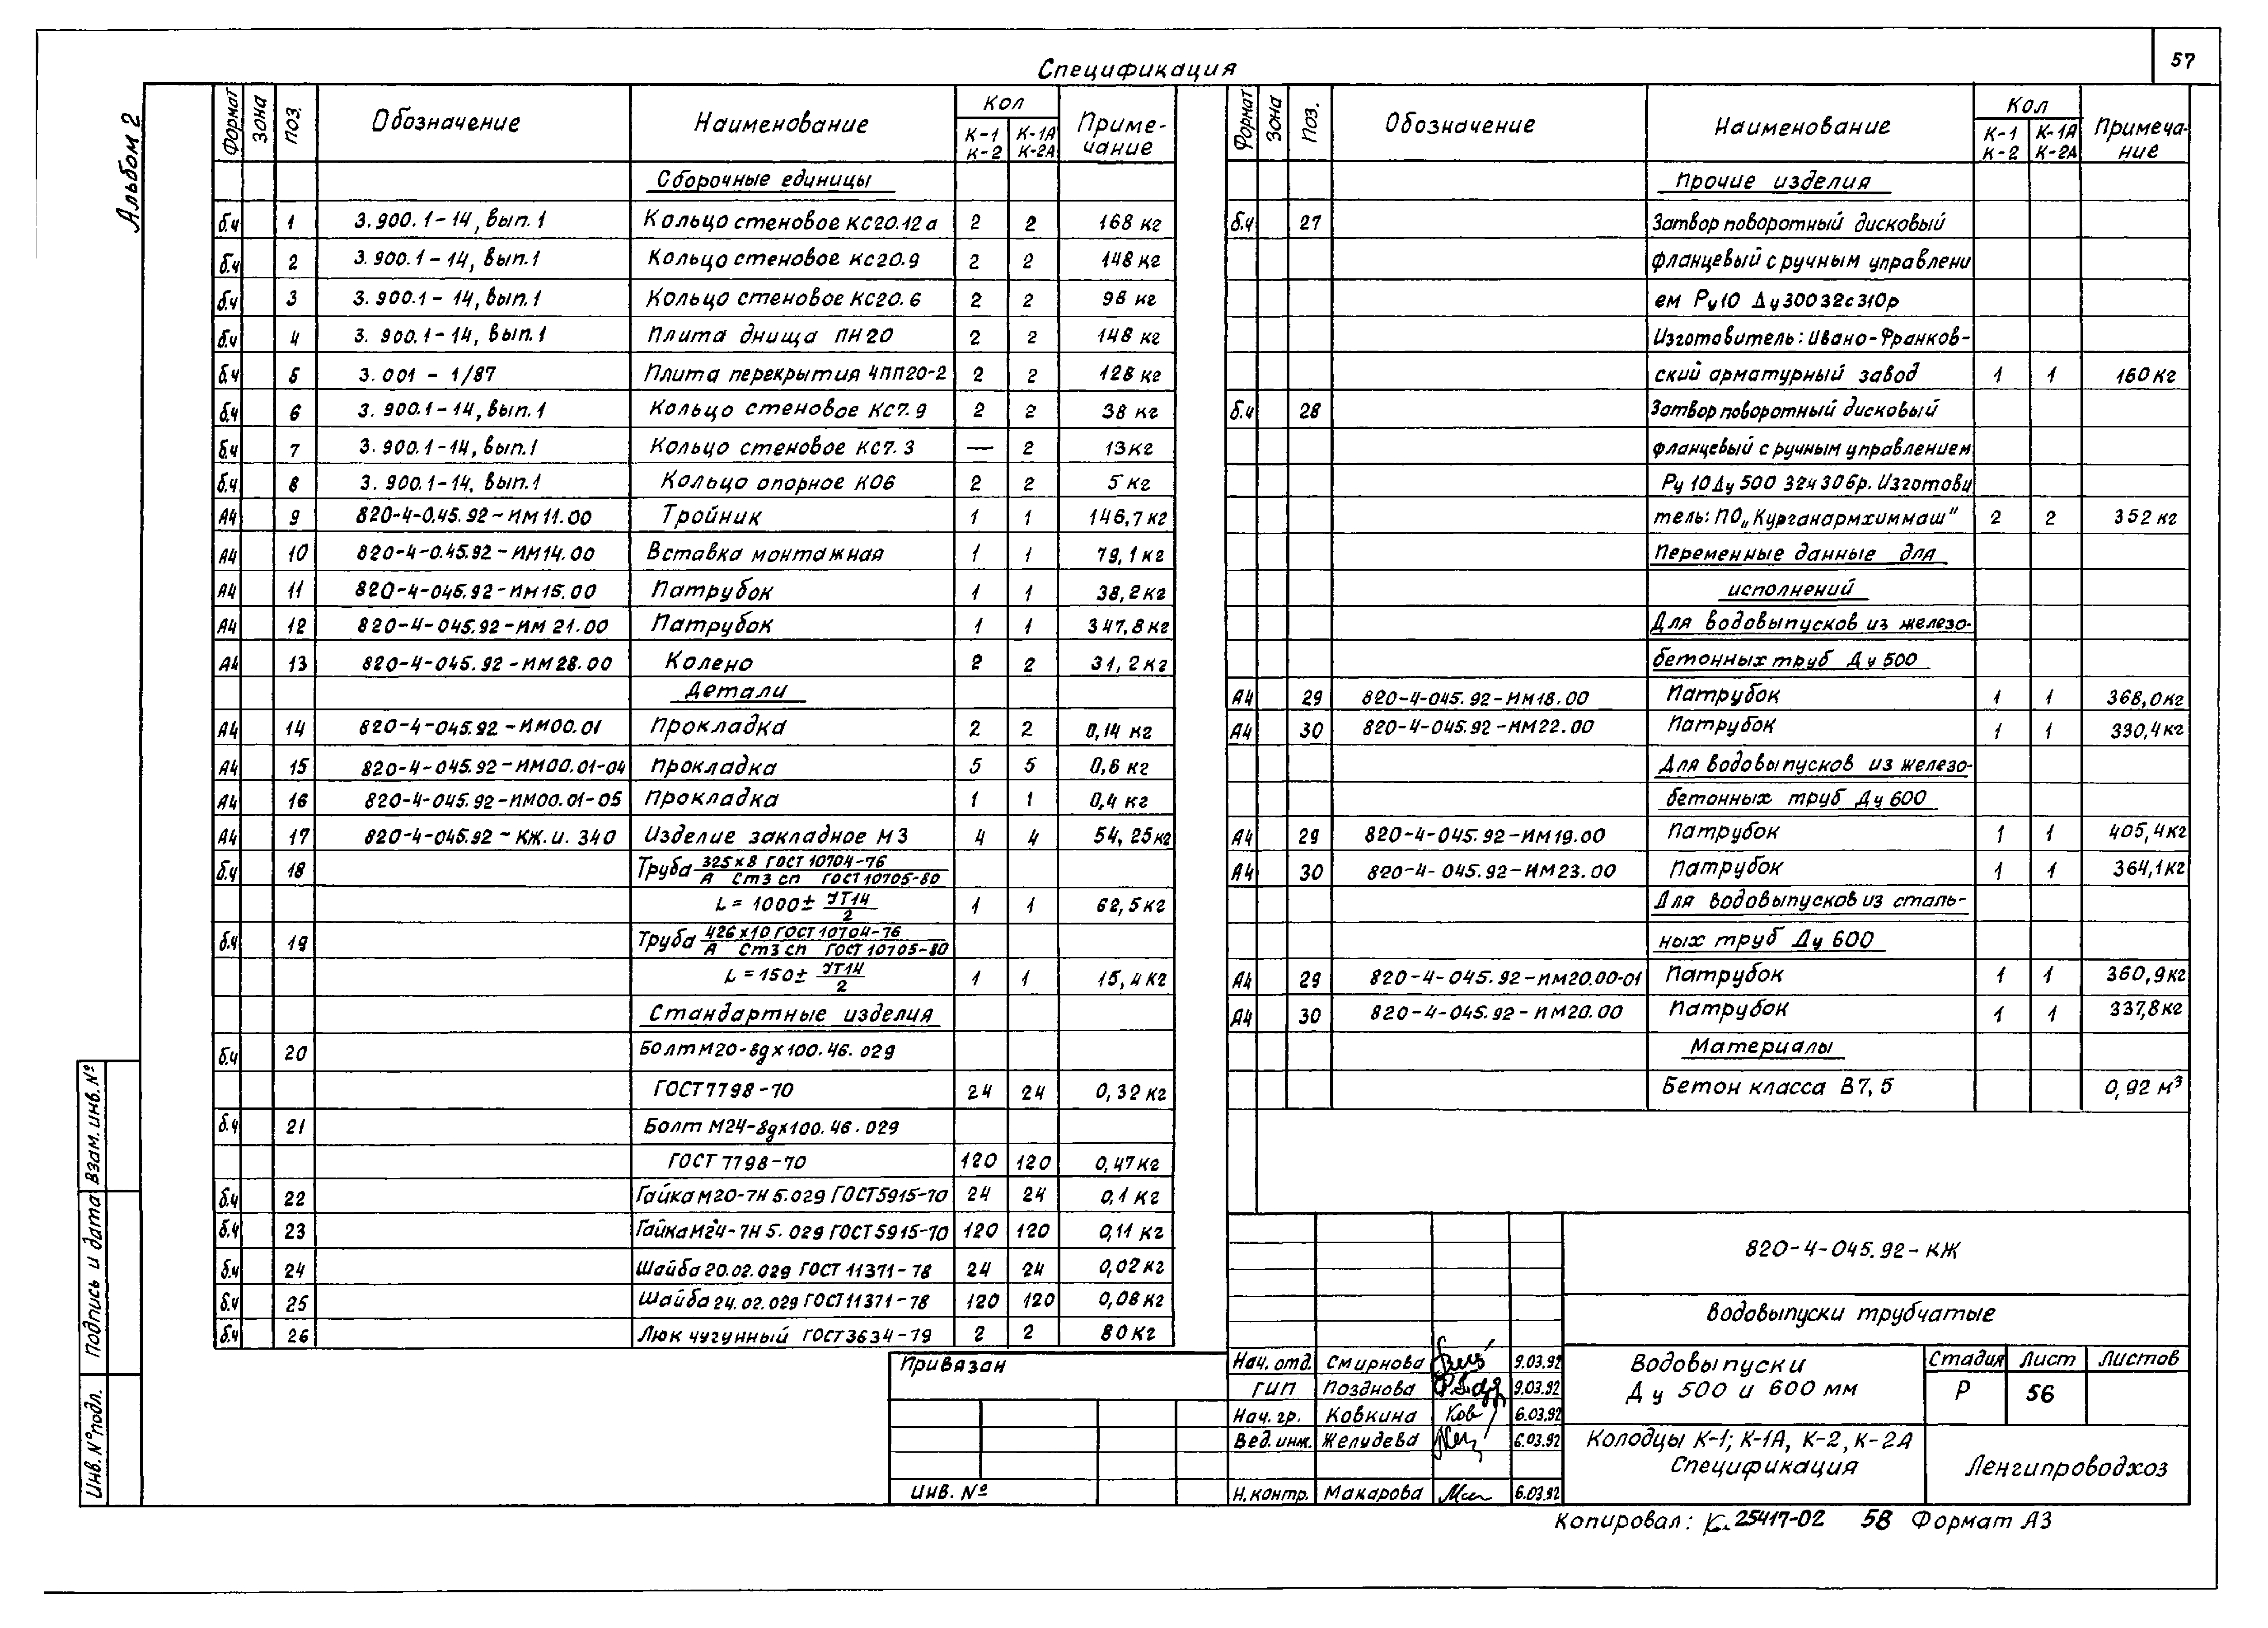 57
Спецификация
Альбом 2
Формат Зона Поз. Обозначение Наименование Кол Приме-чание
К-1 К-2 К-1А К-2А
Сборочные единицы
б.ч 1 3.900.1-14, вып.1 Кольцо стеновое КС20.12а 2 2 168 кг
б.ч 2 3.900.1-14, вып.1 Кольцо стеновое КС20.9 2 2 148 кг
б.ч 3 3.900.1-14, вып.1 Кольцо стеновое КС20.6 2 2 98 кг
б.ч 4 3.900.1-14, вып.1 Плита днища ПН20 2 2 148 кг
б.ч 5 3.001-1/87 Плита перекрытия 4ПП20-2 2 2 128 кг
б.ч 6 3.900.1-14, вып.1 Кольцо стеновое КС7.9 2 2 38 кг
б.ч 7 3.900.1-14, вып.1 Кольцо стеновое КС7.3 — 2 13 кг
б.ч 8 3.900.1-14, вып.1 Кольцо опорное К06 2 2 5 кг
А4 9 820-4-0.45.92-ИМ11.00 Тройник 1 1 146,7 кг
А4 10 820-4-0.45.92-ИМ14.00 Вставка монтажная 1 1 79,1 кг
А4 11 820-4-045.92-ИМ15.00 Патрубок 1 1 38,2 кг
А4 12 820-4-045.92-ИМ 21.00 Патрубок 1 1 347,8 кг
А4 13 820-4-045.92-ИМ28.00 Колено 2 2 31,2 кг
Детали
А4 14 820-4-045.92-ИМ00.01 Прокладка 2 2 0,14 кг
А4 15 820-4-045.92-ИМ00.01-04 Прокладка 5 5 0,6 кг
А4 16 820-4-045.92-ИМ00.01-05 Прокладка 1 1 0,4 кг
А4 17 820-4-045.92-КЖ.и.340 Изделие закладное М3 4 4 54,25 кг
б.ч 18 Труба 325х8 ГОСТ 10704-76
А Ст3 сп ГОСТ 10705-80
L = 1000 ± JT14/2 1 1 62,5 кг
б.ч 19 Труба 426х10 ГОСТ 10704-76
А Ст3 сп ГОСТ 10705-80
L = 150 ± JT14/2 1 1 15,4 кг
Стандартные изделия
б.ч 20 Болт М20-8gх100.46.029
ГОСТ 7798-70 24 24 0,32 кг
б.ч 21 Болт М24-8gх100.46.029
ГОСТ 7798-70 120 120 0,47 кг
б.ч 22 Гайка М20-7Н 5.029 ГОСТ 5915-70 24 24 0,1 кг
б.ч 23 Гайка М24-7Н 5.029 ГОСТ 5915-70 120 120 0,11 кг
б.ч 24 Шайба 20.02.029 ГОСТ 11371-78 24 24 0,02 кг
б.ч 25 Шайба 24.02.029 ГОСТ 11371-78 120 120 0,08 кг
б.ч 26 Люк чугунный ГОСТ 3634-79 2 2 80 кг
Формат Зона Поз. Обозначение Наименование Кол Примеча-ние
К-1 К-2 К-1А К-2А
Прочие изделия
б.ч 27 Затвор поворотный дисковый
фланцевый с ручным управлени
ем Ру10 Ду300 32с310р
Изготовитель: Ивано-Франков-
ский арматурный завод 1 1 160 кг
б.ч 28 Затвор поворотный дисковый
фланцевый с ручным управлением
Ру 10 Ду 500 32ч306р. Изготови
тель: ПО „Курганармхиммаш" 2 2 352 кг
Переменные данные для
исполнений
Для водовыпусков из железо-
бетонных труб Ду 500
А4 29 820-4-045.92-ИМ18.00 Патрубок 1 1 368,0 кг
А4 30 820-4-045.92-ИМ22.00 Патрубок 1 1 330,4 кг
Для водовыпусков из железо-
бетонных труб Ду 600
А4 29 820-4-045.92-ИМ19.00 Патрубок 1 1 405,4 кг
А4 30 820-4-045.92-ИМ23.00 Патрубок 1 1 364,1 кг
Для водовыпусков из сталь-
ных труб Ду 600
А4 29 820-4-045.92-ИМ20.00-01 Патрубок 1 1 360,9 кг
А4 30 820-4-045.92-ИМ20.00 Патрубок 1 1 337,8 кг
Материалы
Бетон класса В7,5 0,92 м³
820-4-045.92-КЖ
Водовыпуски трубчатые
Привязан
Инв. №
Нач. отд. Смирнова 9.03.92
ГИП Позднова 9.03.92
Нач. гр. Ковкина Ков 6.03.92
Вед. инж. Желудева 6.03.92
Н. контр. Макарова 6.03.92
Водовыпуски
Ду 500 и 600 мм
Стадия Лист Листов
Р 56
Колодцы К-1; К-1А, К-2, К-2А
Спецификация
Ленгипроводхоз
Взам. инв. №
Подпись и дата
Инв. № подл.
Копировал: 25417-02 58 Формат А3